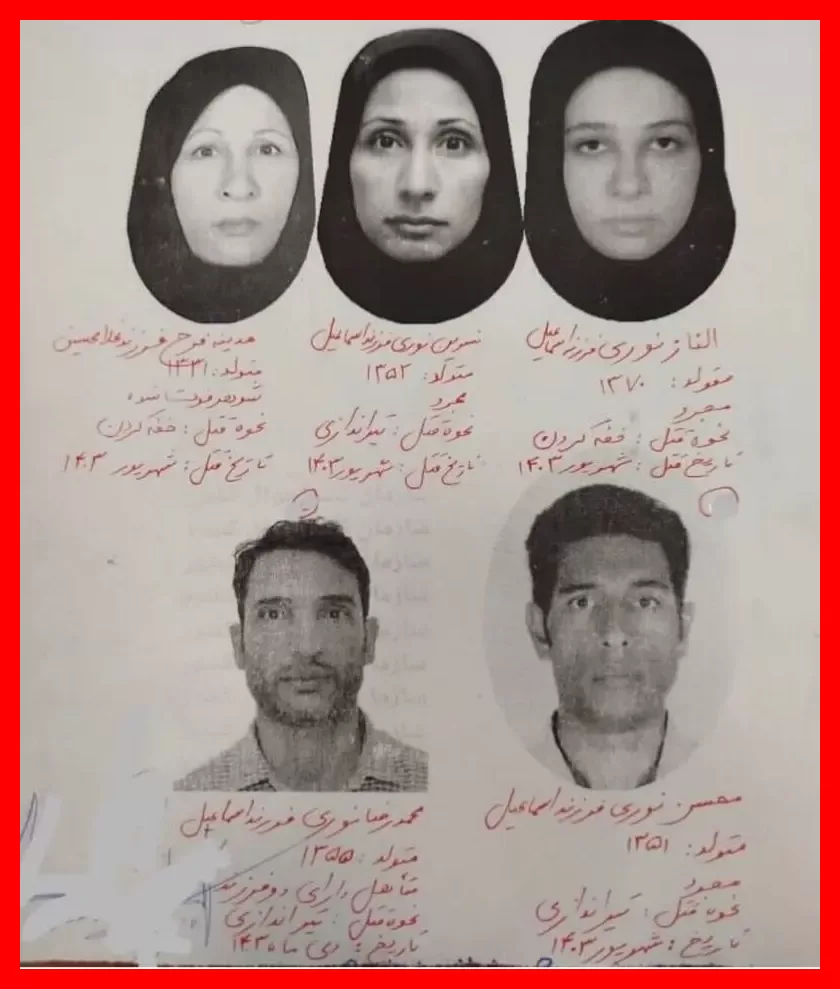 الناز نوری فرزند اسماعیل
متولد: ۱۳۷۰
مجرد
نحوه قتل: خفه کردن
تاریخ قتل: شهریور ۱۴۰۳
نسرین نوری فرزند اسماعیل
متولد: ۱۳۵۲
مجرد
نحوه قتل: تیراندازی
تاریخ قتل: شهریور ۱۴۰۳
مدینه فرخ فر فرزند غلامحسین
متولد: ۱۳۳۱
شوهر فوت شده
نحوه قتل: خفه کردن
تاریخ قتل: شهریور ۱۴۰۳
محسن نوری فرزند اسماعیل
متولد: ۱۳۵۱
مجرد
نحوه قتل: تیراندازی
تاریخ: شهریور ۱۴۰۳
محمدرضا نوری فرزند اسماعیل
متولد: ۱۳۵۵
متأهل دارای دو فرزند
نحوه قتل: تیراندازی
تاریخ: دی ماه ۱۴۰۳